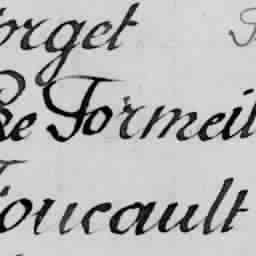 orget
Le Formeil
Foucault